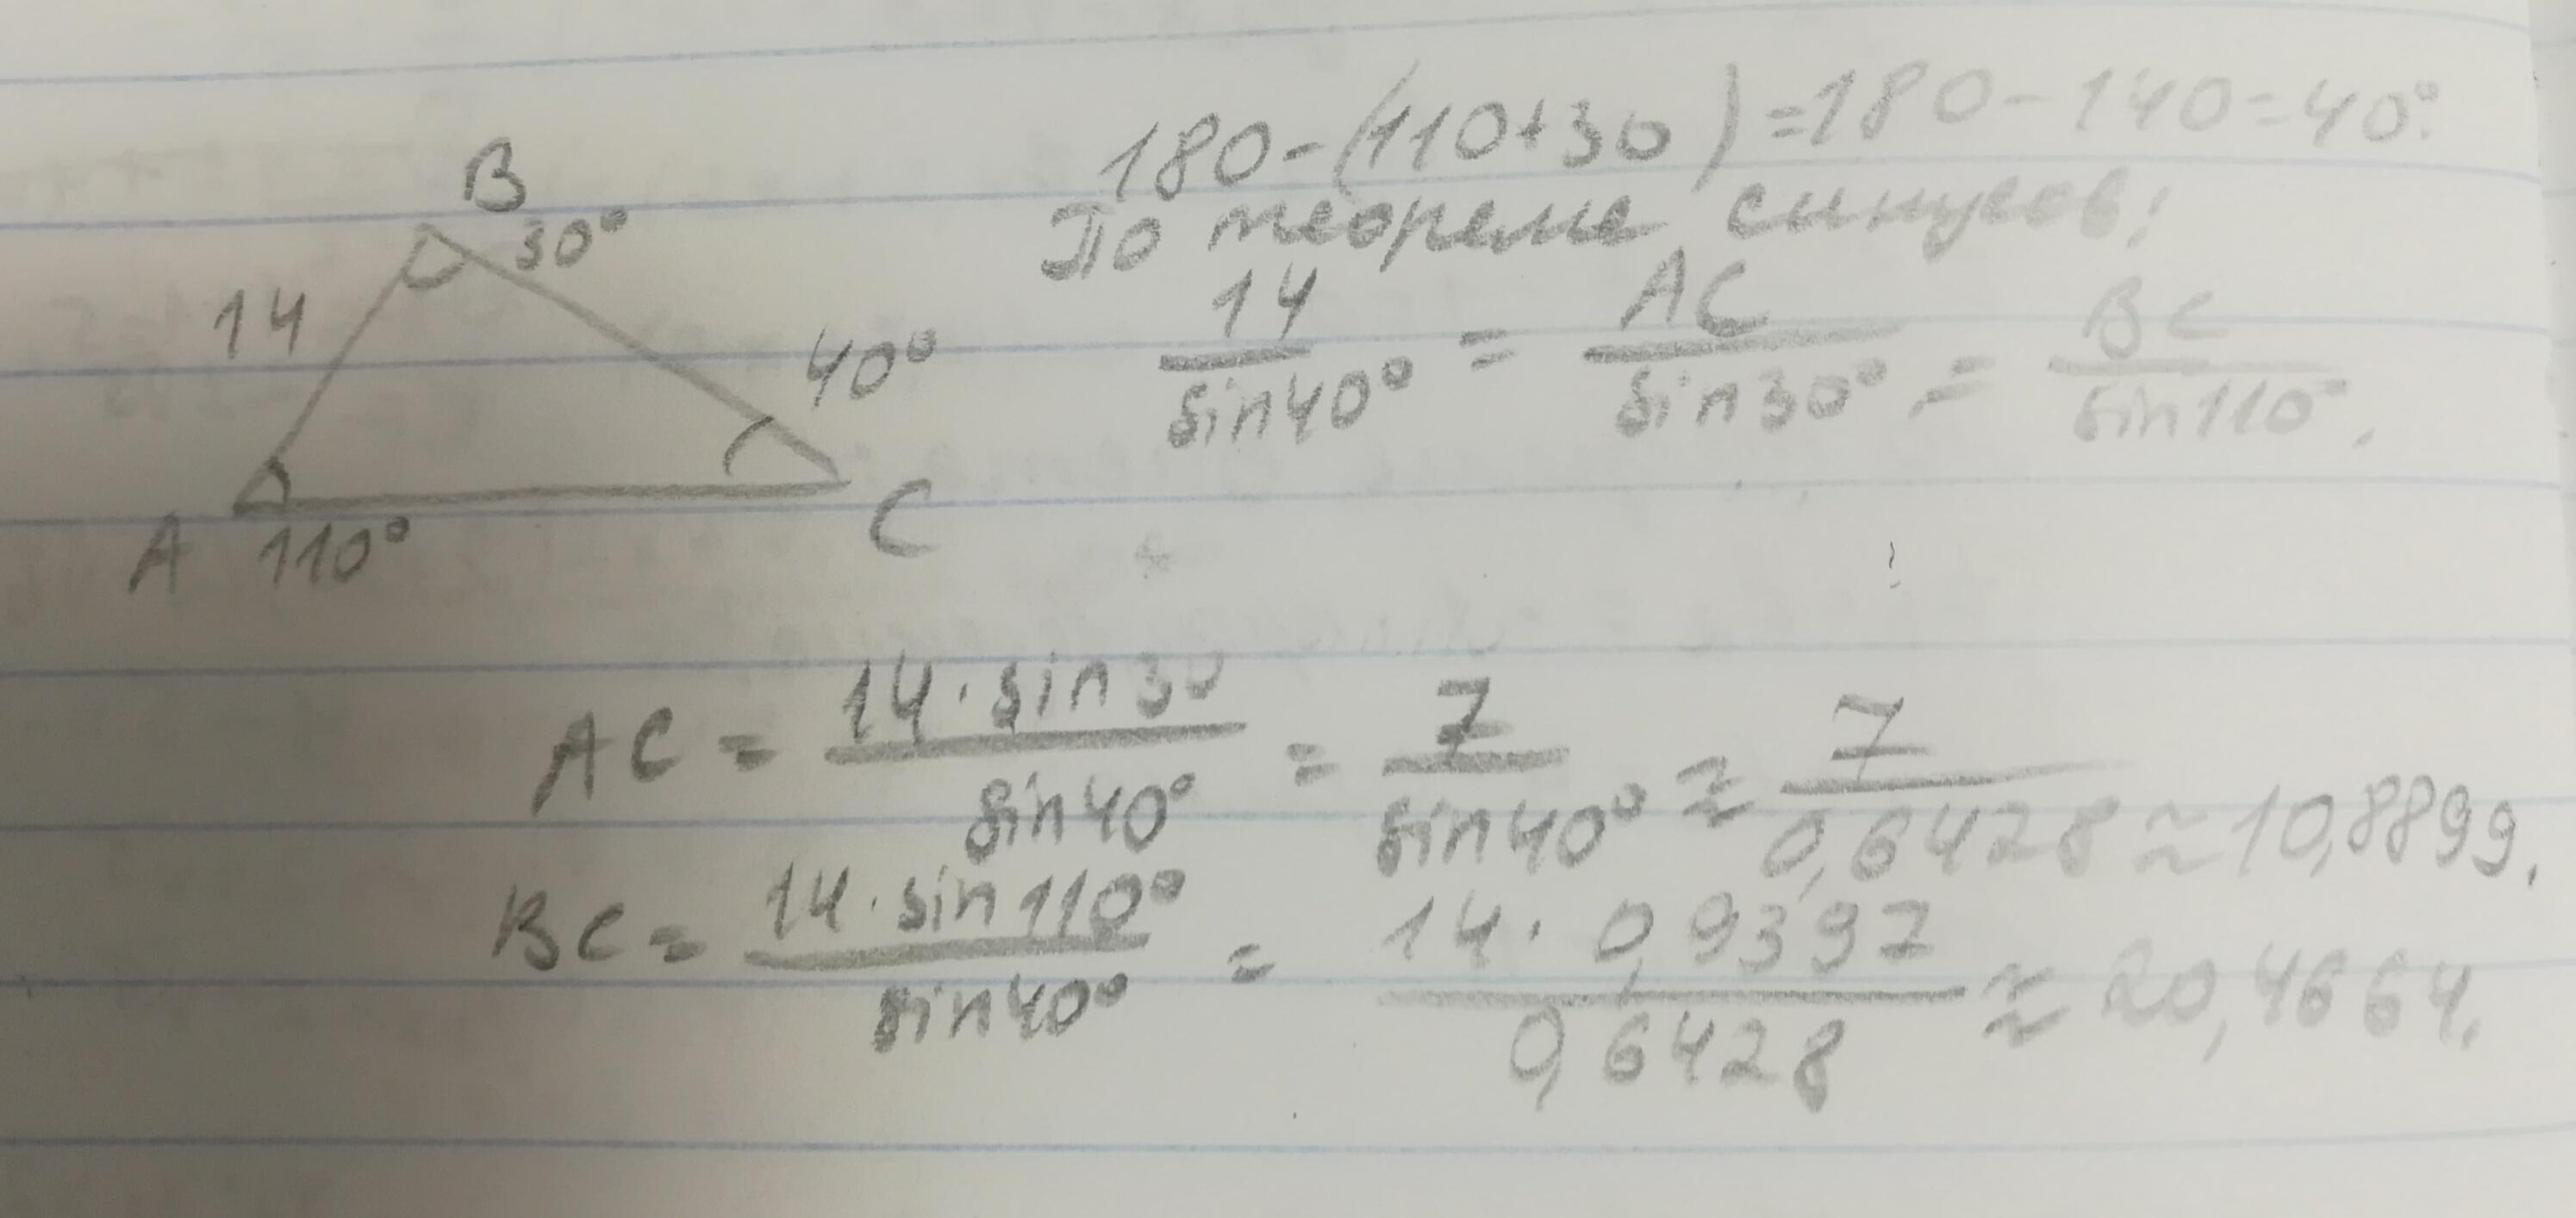 B
30°
14
40°
A 110°
C
180-(110+30)=180-140=40°.
По теореме синусов:
14/sin40° = AC/sin30° = BC/sin110°.
AC = 14·sin30/sin40° = 7/sin40° ≈ 7/0,6428 ≈ 10,8899.
BC = 14·sin110°/sin40° = 14·0,9397/0,6428 ≈ 20,4664.